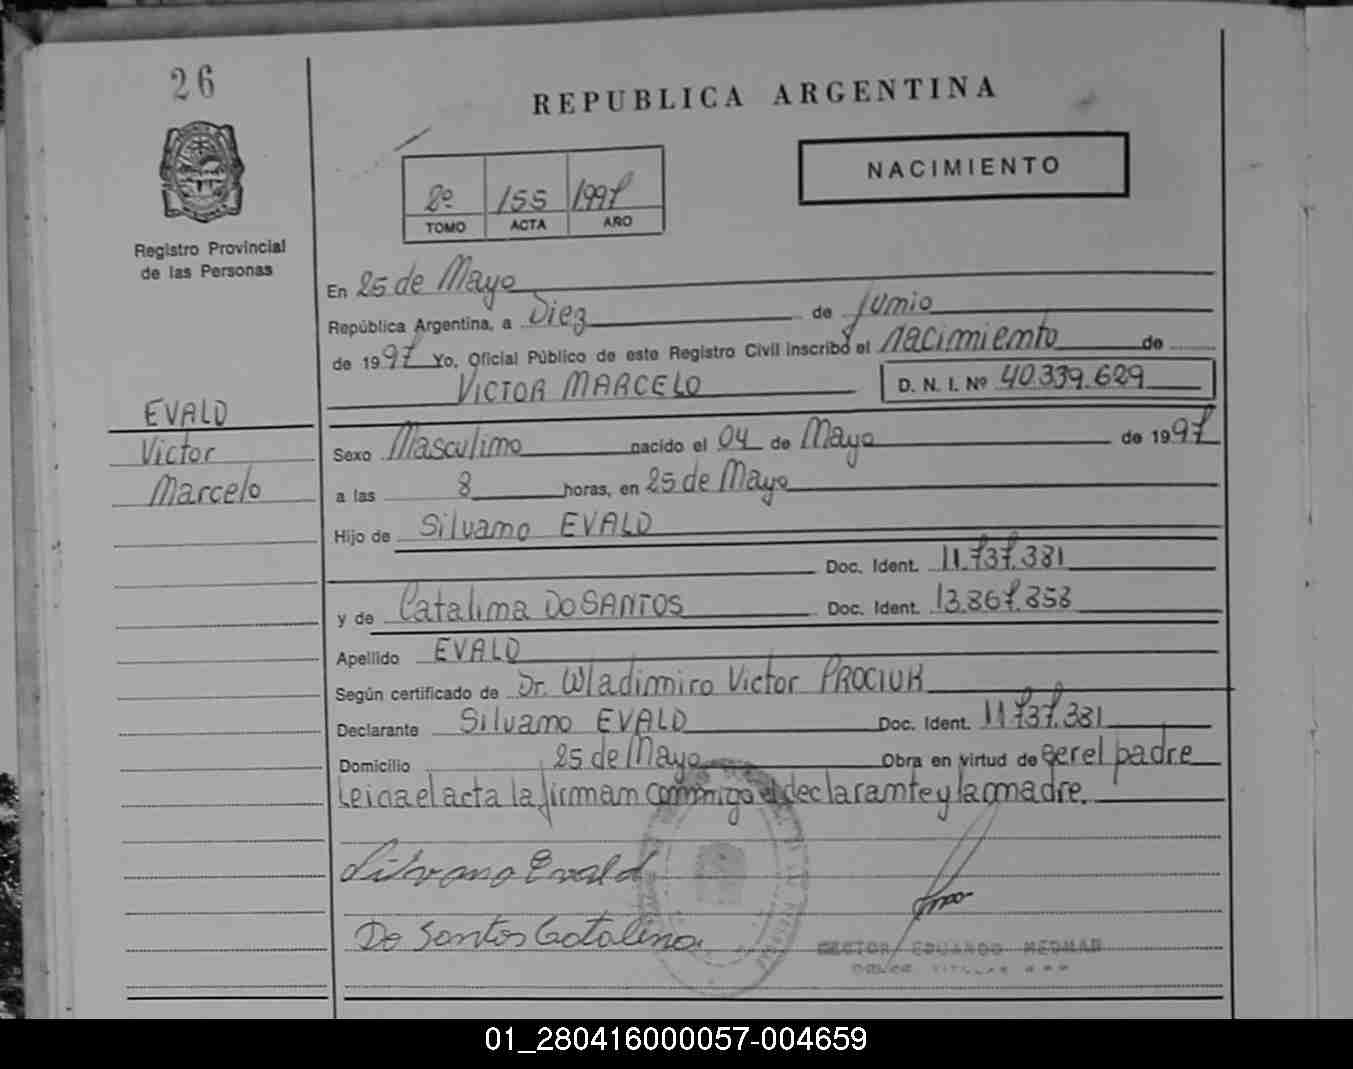 26
REPUBLICA ARGENTINA
NACIMIENTO
2º 155 1997
TOMO ACTA AÑO
Registro Provincial
de las Personas
En 25 de Mayo
República Argentina, a Diez de Junio
de 1997 Yo, Oficial Público de este Registro Civil inscribo el nacimiento de
VICTOR MARCELO D. N. I. Nº 40.339.629
EVALD
Victor
Marcelo
Sexo Masculino nacido el 04 de Mayo de 1997
a las 8 horas, en 25 de Mayo
Hijo de Silvano EVALD
Doc. Ident. 11.737.381
y de Catalina DO SANTOS Doc. Ident. 13.867.353
Apellido EVALD
Según certificado de Dr. Wladimiro Victor PROCIUK
Declarante Silvano EVALD Doc. Ident. 11.737.381
Domicilio 25 de Mayo Obra en virtud de ser el padre
Leida el acta la firman conmigo el declarante y la madre.
Silvano Evald
Do Santos Catalina
HECTOR EDUARDO
01_280416000057-004659